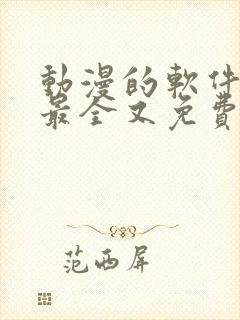 動漫的軟件
最全又免費
范西屏